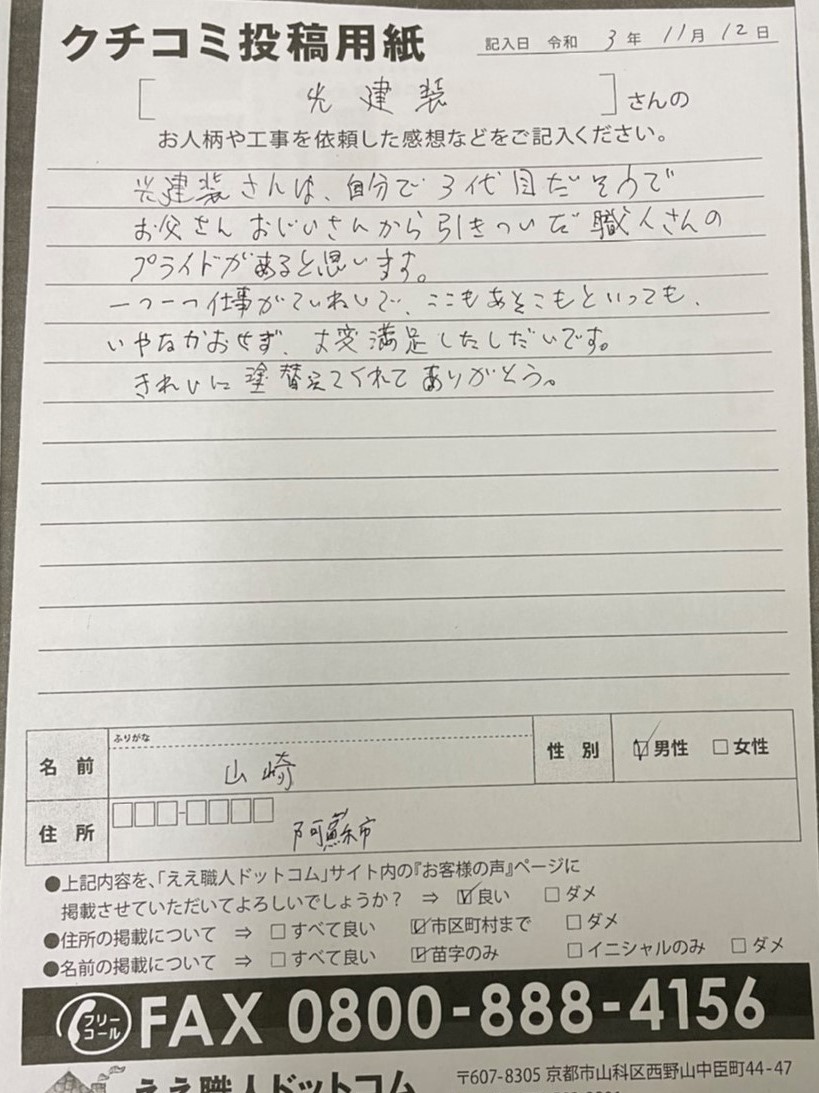 クチコミ投稿用紙
記入日 令和 3年 11月 12日
[ 光建装 ]さんの
お人柄や工事を依頼した感想などをご記入ください。
光建装さんは、自分で3代目だそうで
お父さんおじいさんから引きついだ職人さんの
プライドがあると思います。
一つ一つ仕事がていねいで、ここもあそこもといっても、
いやなかおせず、大変満足したしだいです。
きれいに塗替えてくれてありがとう。
ふりがな
名前 山崎 性別 ☑男性 □女性
住所 □□□-□□□□ 阿蘇市
●上記内容を、「ええ職人ドットコム」サイト内の『お客様の声』ページに
掲載させていただいてよろしいでしょうか? ⇒ ☑良い □ダメ
●住所の掲載について ⇒ □すべて良い ☑市区町村まで □ダメ
●名前の掲載について ⇒ □すべて良い ☑苗字のみ □イニシャルのみ □ダメ
フリーコール FAX 0800-888-4156
ええ職人ドットコム 〒607-8305 京都市山科区西野山中臣町44-47